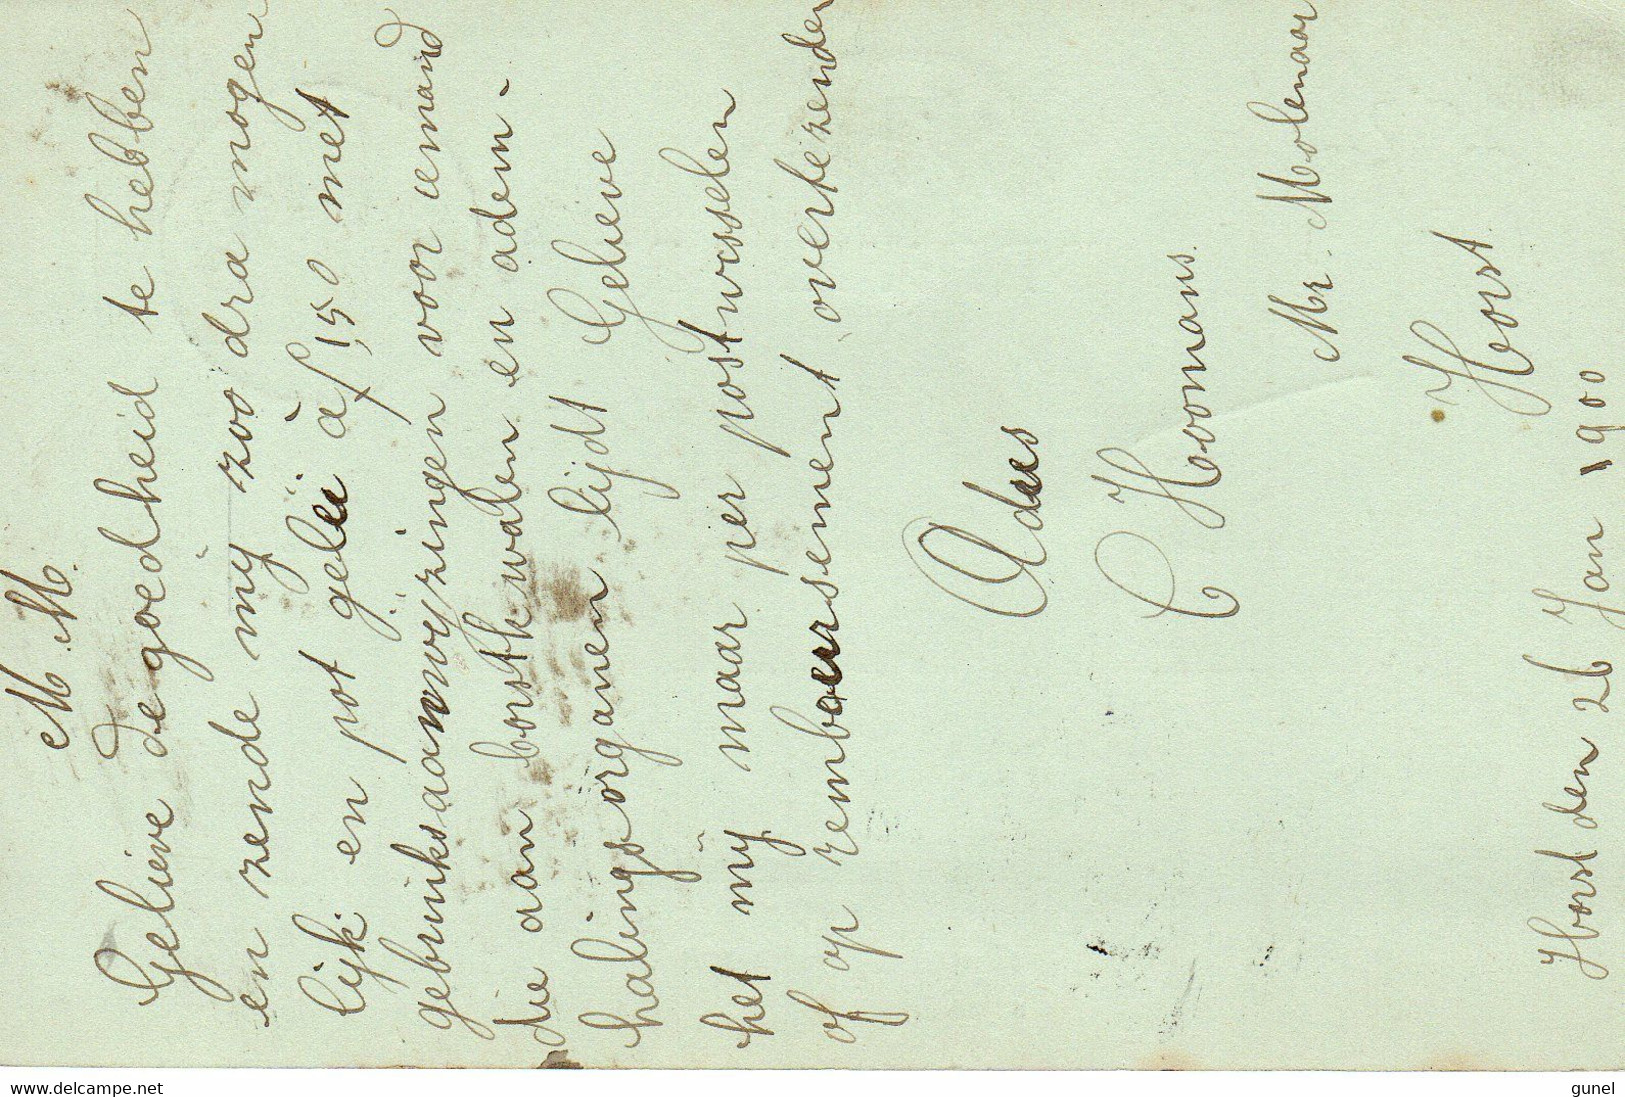 M M.
Gelieve de goedheid te hebben
en zende mij zoo dra mogen
lijk en pot gelei à f 1,50 met
gebruiksaanwijzingen voor iemand
die aan borstkwalen en adem-
halings organen lijdt Gelieve
het mij maar per postwisselen
of op rembourssement overtezenden
Adres
C Hoomans
Mr. Molenaar
Horst
Horst den 26 Jan 1900
www.delcampe.net
gunel